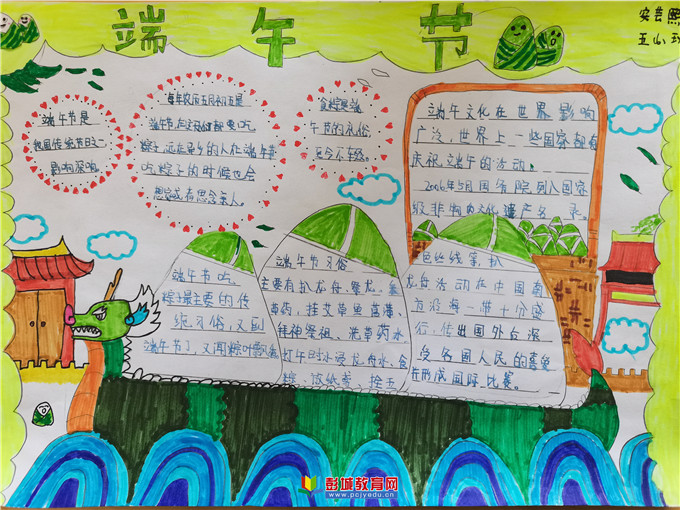 端午节
安芸熙
五山
端午节是
我国传统节日之一
影响深远。
每年农历五月初五是
端午节
粽子,远在异乡的人在端午节
吃粽子的时候也会
想念或者思念亲人。
食粽是端
午节的礼俗
至今不
端午文化在世界影响
广泛,世界上一些国家都有
庆祝端午的活动。
2006年5月国务院列入国家
级非物质文化遗产名录。
端午节吃,
粽子最主要的传
统习俗,又
端午节了,又闻粽叶飘香
端午节习俗
主要有扒龙舟,
草药,挂艾草
拜神祭祖、洗草药水
打午时水浸龙舟水、食
粽、放纸鸢、拴五
色丝线等,扒
龙舟活动在中国南
方沿海一带十分盛
行,传出国外后深
受各国人民的喜爱
并形成国际比赛。
彭城教育网
www.pcjyedu.cn